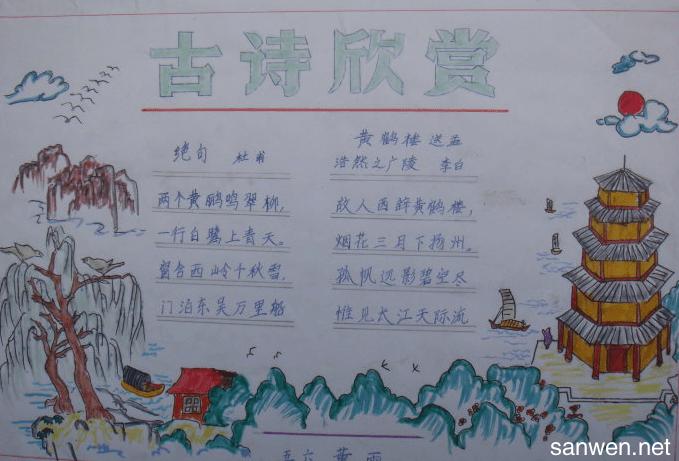 古诗欣赏
绝句 杜甫
两个黄鹂鸣翠柳,
一行白鹭上青天。
窗含西岭千秋雪,
门泊东吴万里船
黄鹤楼送孟
浩然之广陵 李白
故人西辞黄鹤楼,
烟花三月下扬州。
孤帆远影碧空尽
惟见长江天际流
五六 黄雨
sanwen.net